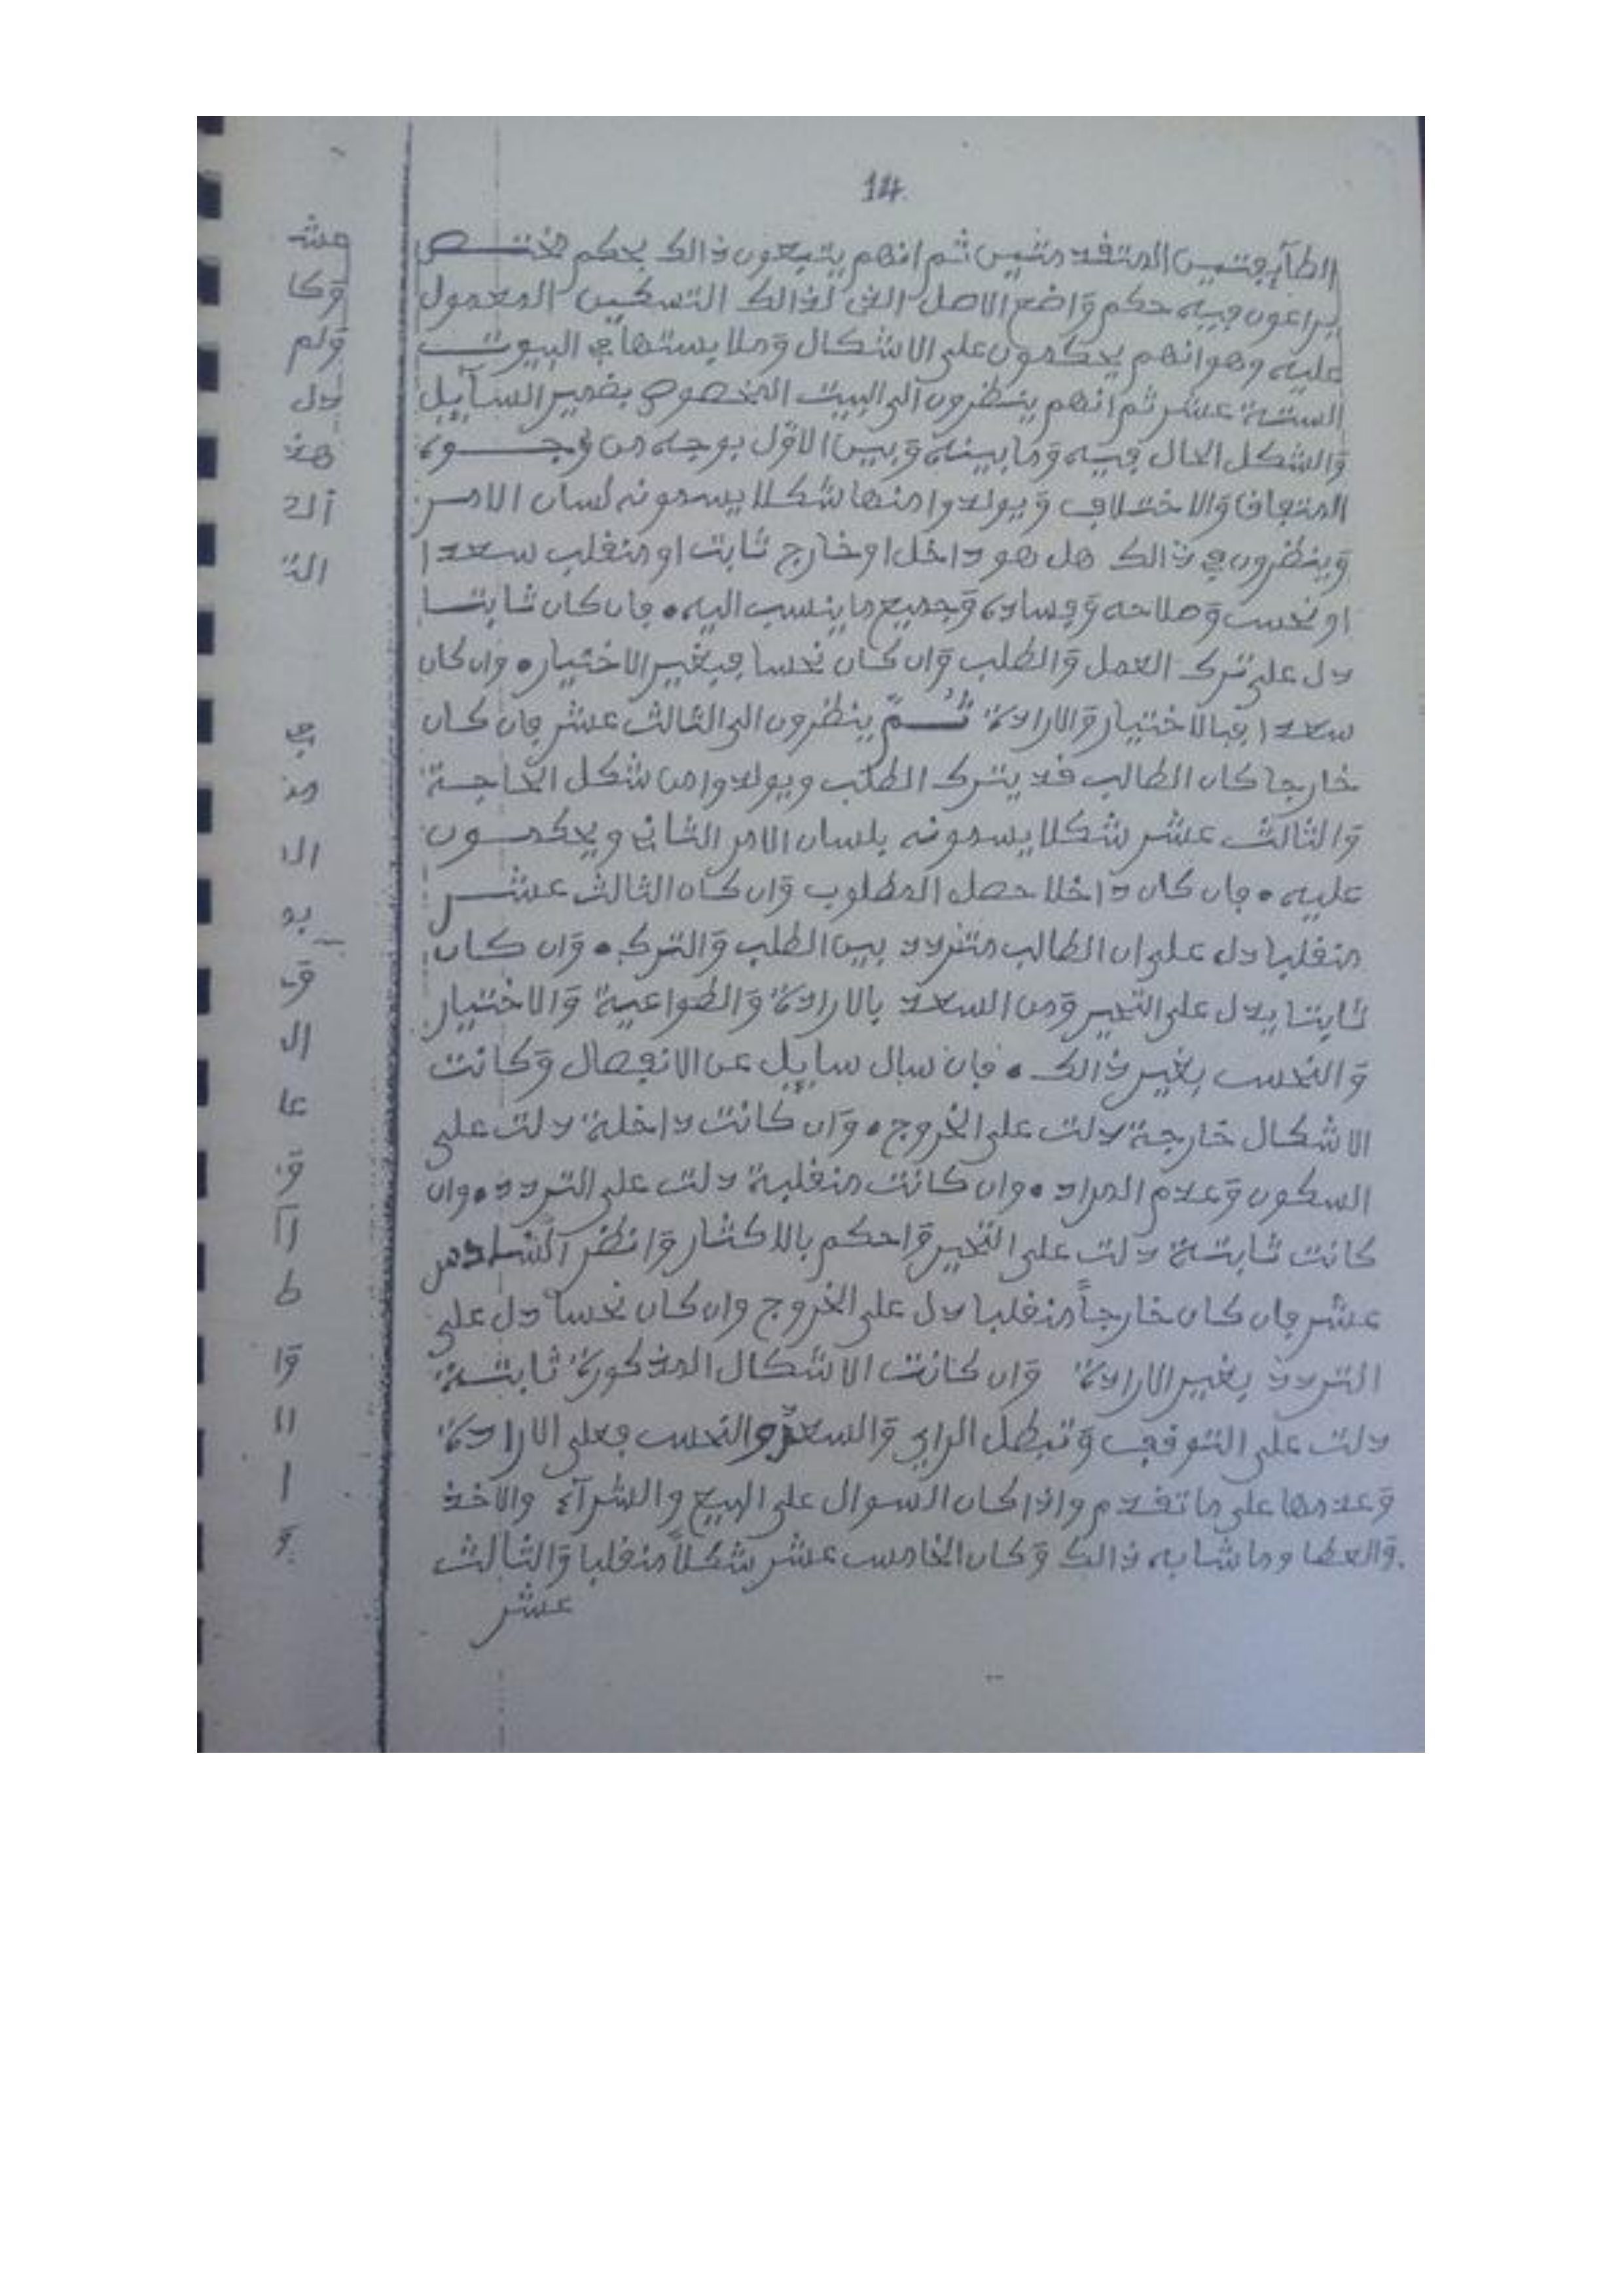 14.
الطآيفتين المتقدمتين ثم انهم يتبعون ذالك بحكم مختص
يراعون فيه حكم وَاضع الاصل التى لذالك التسكين المعمول
عليه وهو انهم يحكمون على الاشكال وَملابستها في البيوت
الستة عشر ثم انهم ينظرون الى البيت المخصوص بضمير السآيل
وَالشكل الحال فيه وَما بينه وَبين الاوّل بوجه من وجوه
وَالاختلاف وَيولدوا منها شكلا يسمونه لسان الامر
وَينظرون في ذالك هل هو داخل او خارج ثابت او منقلب سعدا
او نحس وَصلاحه وَفساده وَجميع ما ينسب اليه • فان كان ثابتا
دل على ترك العمل وَالطلب وَان كان نحسا فبغير الاختيار • وان كان
سعدا فبالاختيار وَالارادة ثُمّ ينظرون الى الثالث عشر فان كان
خارجا كان الطالب قد يترك الطلب ويولدوا من شكل الحاجة
وَالثالث عشر شكلا يسمونه بلسان الامر الثاني ويحكمون
عليه • فان كان داخلا حصل المطلوب وَان كان الثالث عشر
منقلبا دل على ان الطالب متردد بين الطلب وَالترك • وَان كان
ثابتا يدل على التحير وَمن السعد بالارادة وَالطواعية وَالاختيار
وَالنحس بغير ذالك • فان سال سايل عن الانفصال وَكانت
الاشكال خارجة دلت على الخروج • وَان كانت داخلة دلت على
السكون وَعدم المراد • وان كانت منقلبة دلت على التردد • وان
كانت ثابتة دلت على التحير وَاحكم بالاكثار وَانظر السادس
عشر فان كان خارجاً منقلبا دل على الخروج وان كان نحسا دل على
التردد بغير الارادة وَان كانت الاشكال المذكورة ثابتة
دلت على التوقف وَتبطل الراي وَالسعد والنحس فعلى الارادة
وَعدمها على ما تقدم واذا كان السوال على البيع والشرآء والاخذ
وَالعطا وما شابه ذالك وَكان الخامس عشر شكلاً منقلبا وَالثالث
عشر